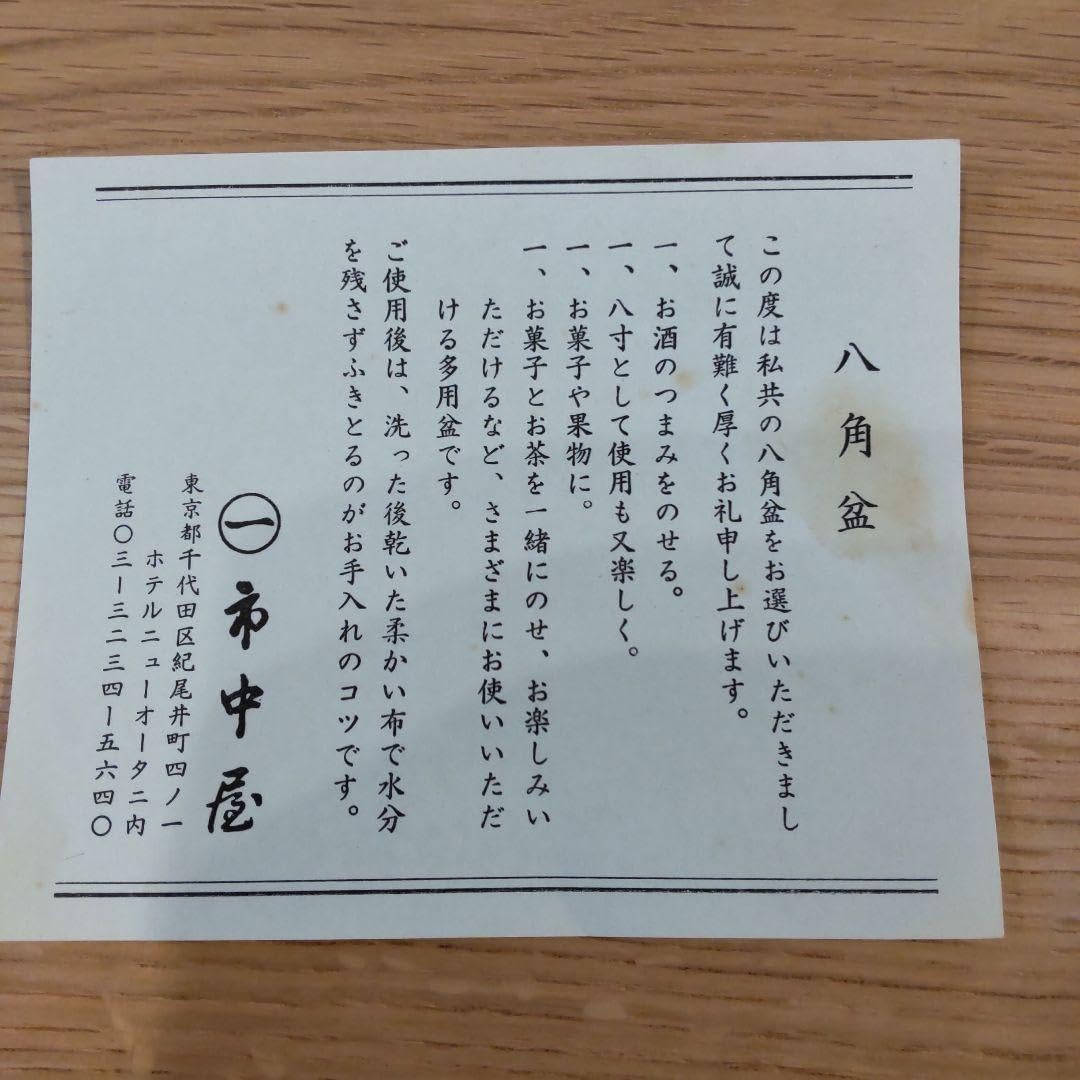 八角盆
この度は私共の八角盆をお選びいただきまし
て誠に有難く厚くお礼申し上げます。
一、お酒のつまみをのせる。
一、八寸として使用も又楽しく。
一、お菓子や果物に。
一、お菓子とお茶を一緒にのせ、お楽しみい
ただけるなど、さまざまにお使いいただ
ける多用盆です。
ご使用後は、洗った後乾いた柔かい布で水分
を残さずふきとるのがお手入れのコツです。
㊀市中屋
東京都千代田区紀尾井町四ノ一
ホテルニューオータニ内
電話〇三ー三二三四ー五六四〇